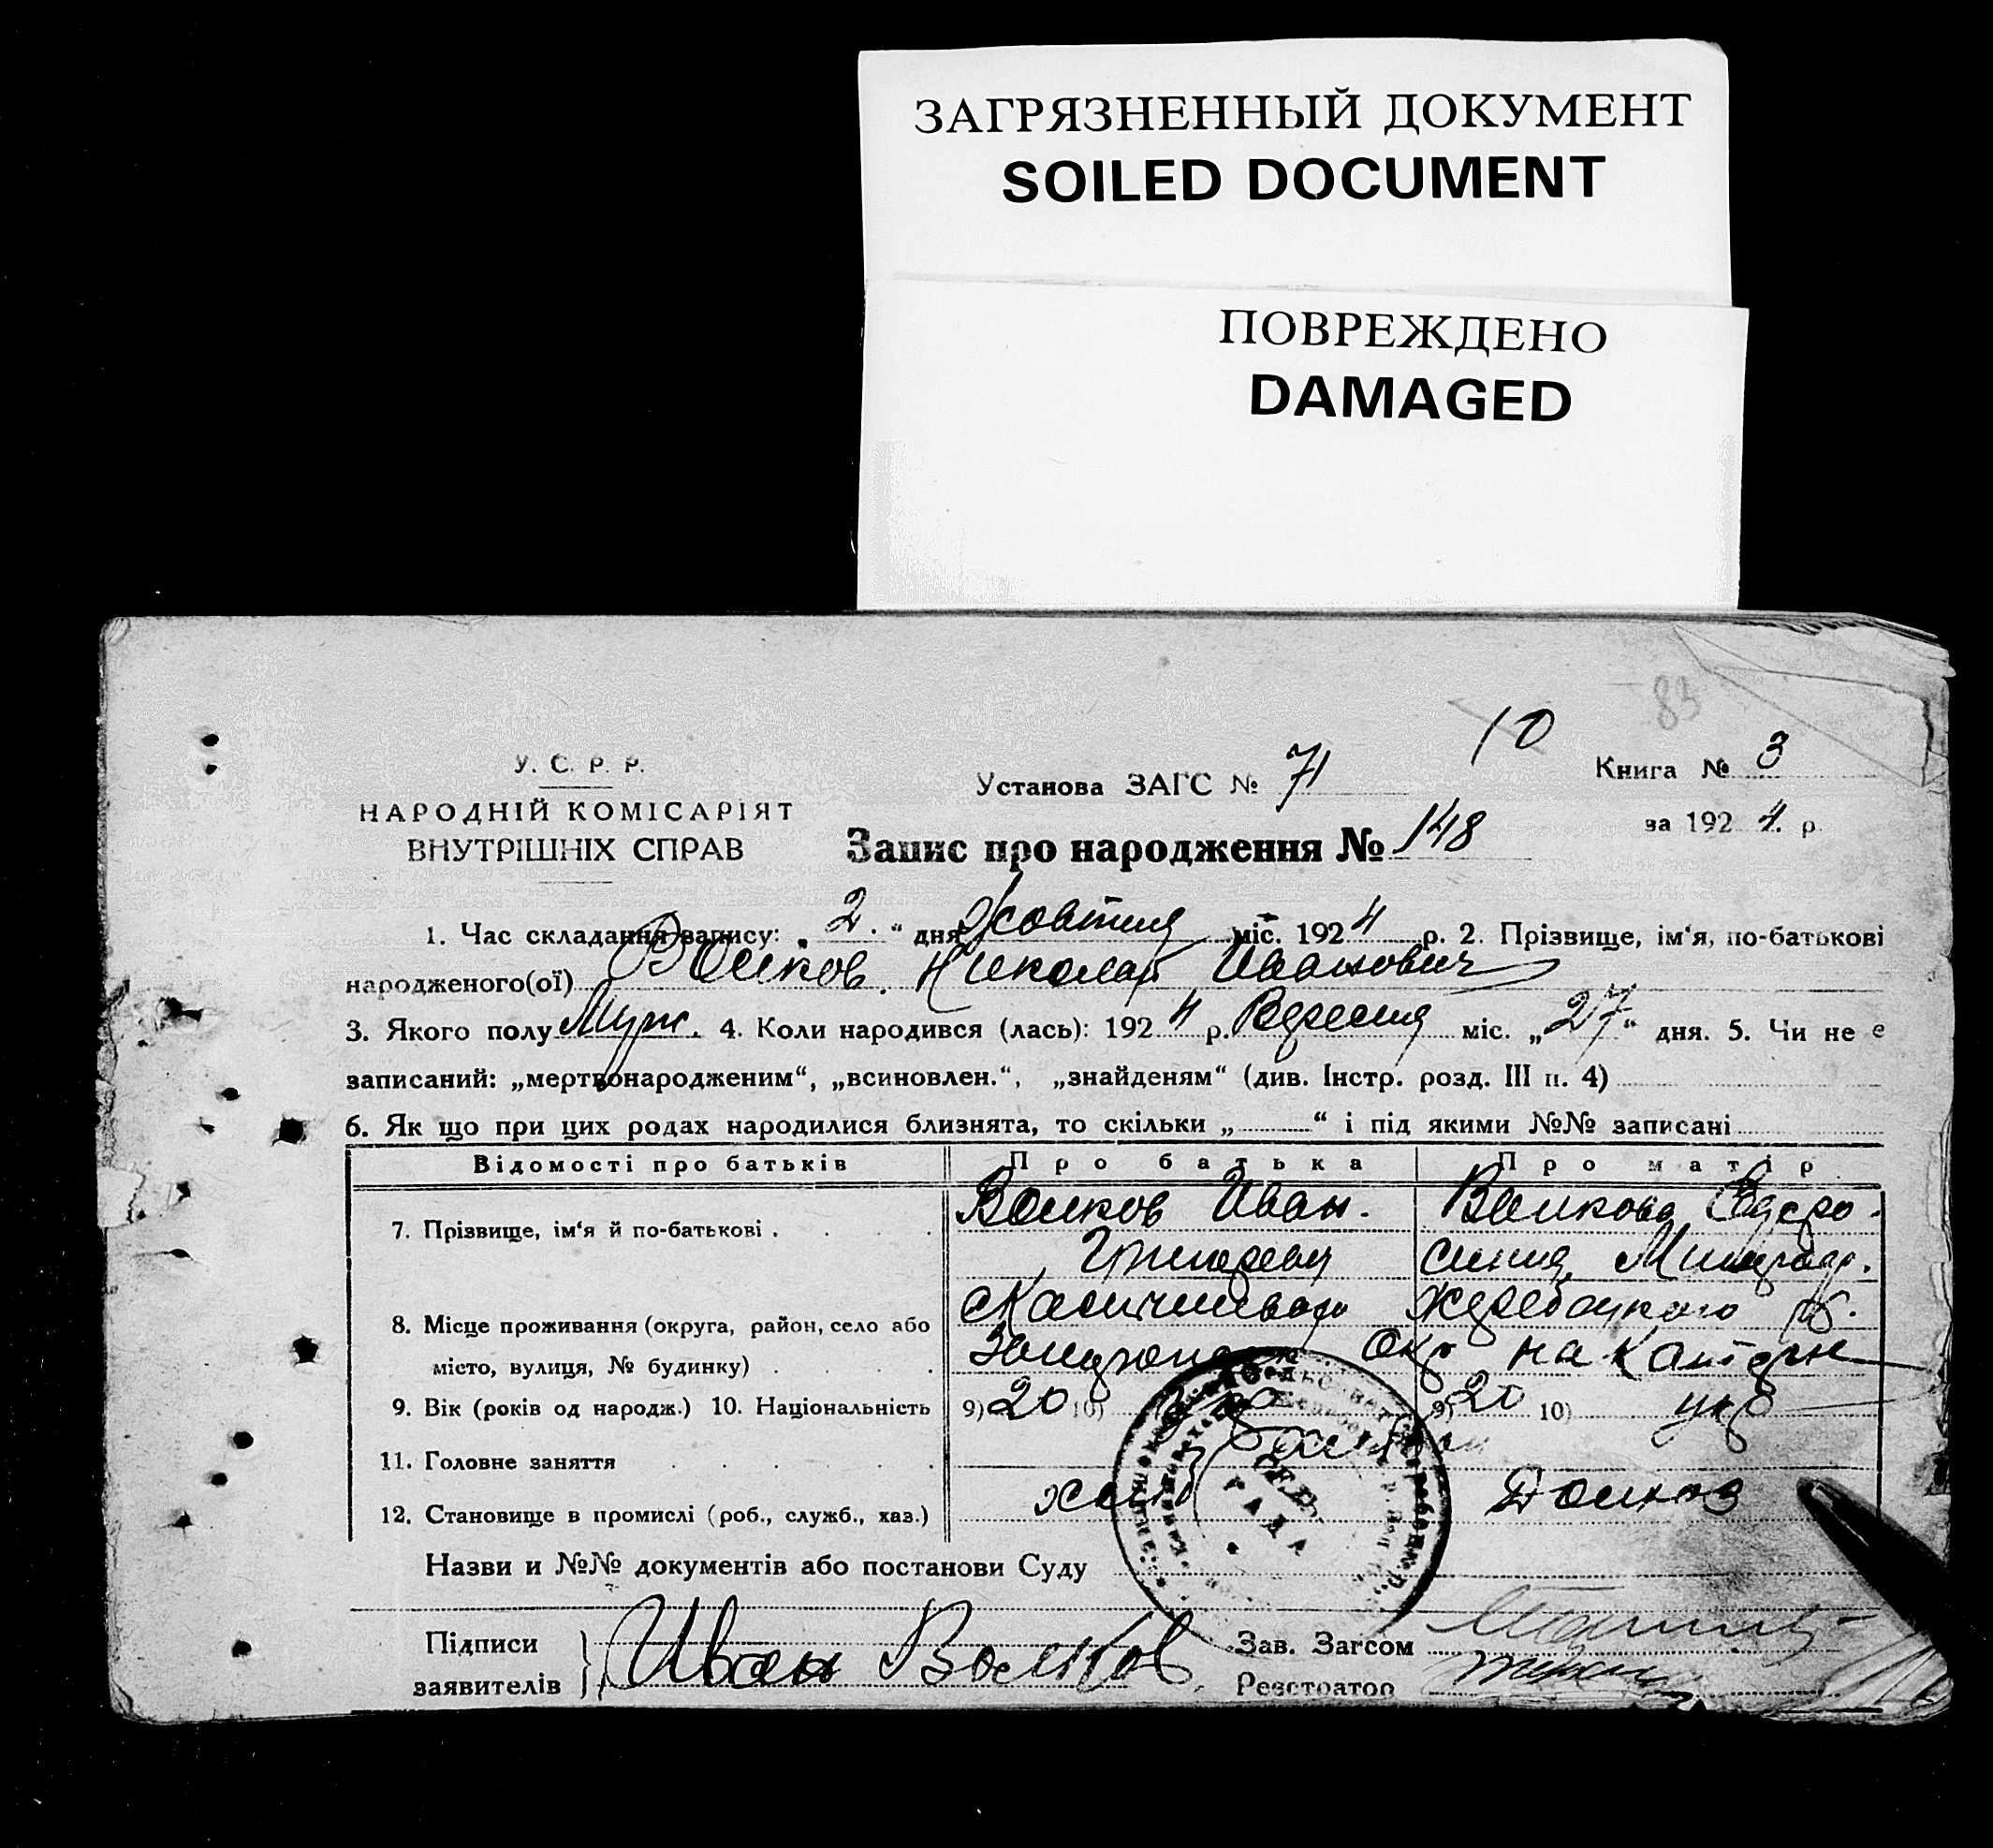 ЗАГРЯЗНЕННЫЙ ДОКУМЕНТ
SOILED DOCUMENT
ПОВРЕЖДЕНО
DAMAGED
83
10
У. С. Р. Р.
НАРОДНІЙ КОМІСАРІЯТ
ВНУТРІШНІХ СПРАВ
Установа ЗАГС № 71
Книга № 3
за 1924 р.
Запис про народження № 148
1. Час складання запису: „2.“ дня Жовтня міс. 1924 р. 2. Прізвище, ім'я, по-батькові
народженого(ої) Волков Николай Иванович
3. Якого полу Муж. 4. Коли народився (лась): 1924 р. Вересня міс. „27“ дня. 5. Чи не є
записаний: „мертвонародженим“, „всиновлен.“, „знайденям“ (див. Інстр. розд. III п. 4)
6. Як що при цих родах народилися близнята, то скільки „ “ і під якими №№ записані
Відомості про батьків Про батька Про матір
7. Прізвище, ім'я й по-батькові . Волков Иван. Волкова Евфро-
Григорьев синия
8. Місце проживання (округа, район, село або Жеребецкого р.
місто, вулиця, № будинку) Окр
9. Вік (років од народж.) 10. Національність 9) 20 10) Укр 9) 20 10) укр
11. Головне заняття
12. Становище в промислі (роб., служб., хаз.) хліб Домхоз
РАДА
Назви и №№ документів або постанови Суду
Підписи
заявителів Иван Волков
Зав. Загсом
Реєстратор